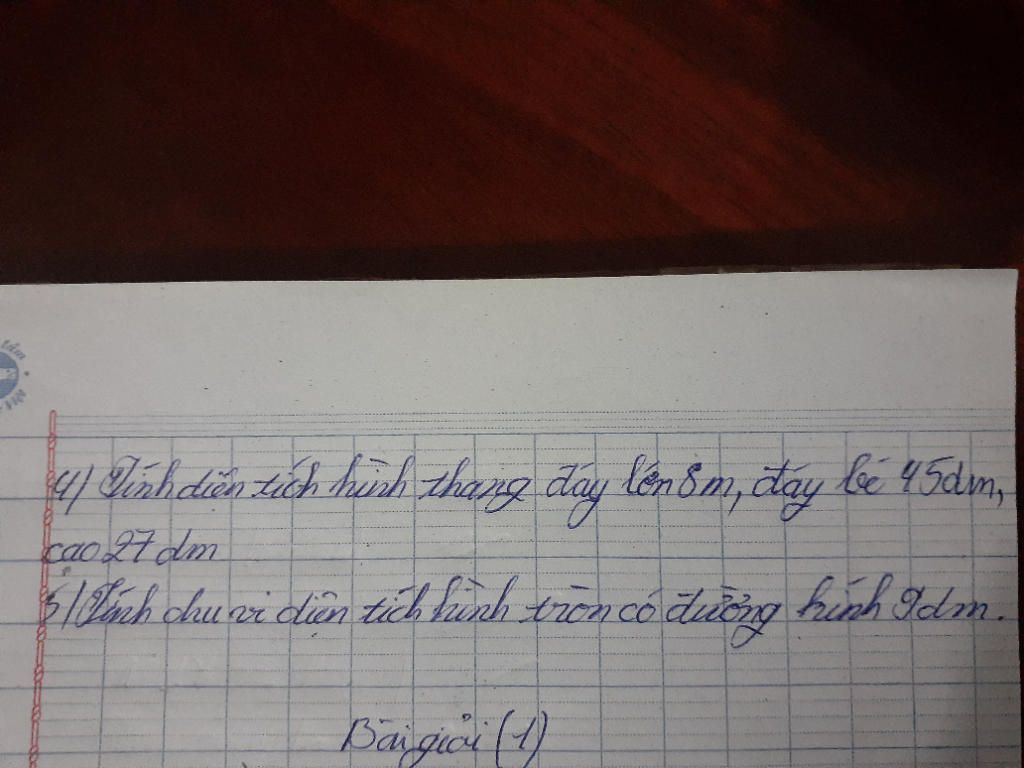 4) Tính diện tích hình thang đáy lớn 8m, đáy bé 45dm,
cao 27 dm
5) Tính chu vi diện tích hình tròn có đường kính 9dm.
Bài giải (1)